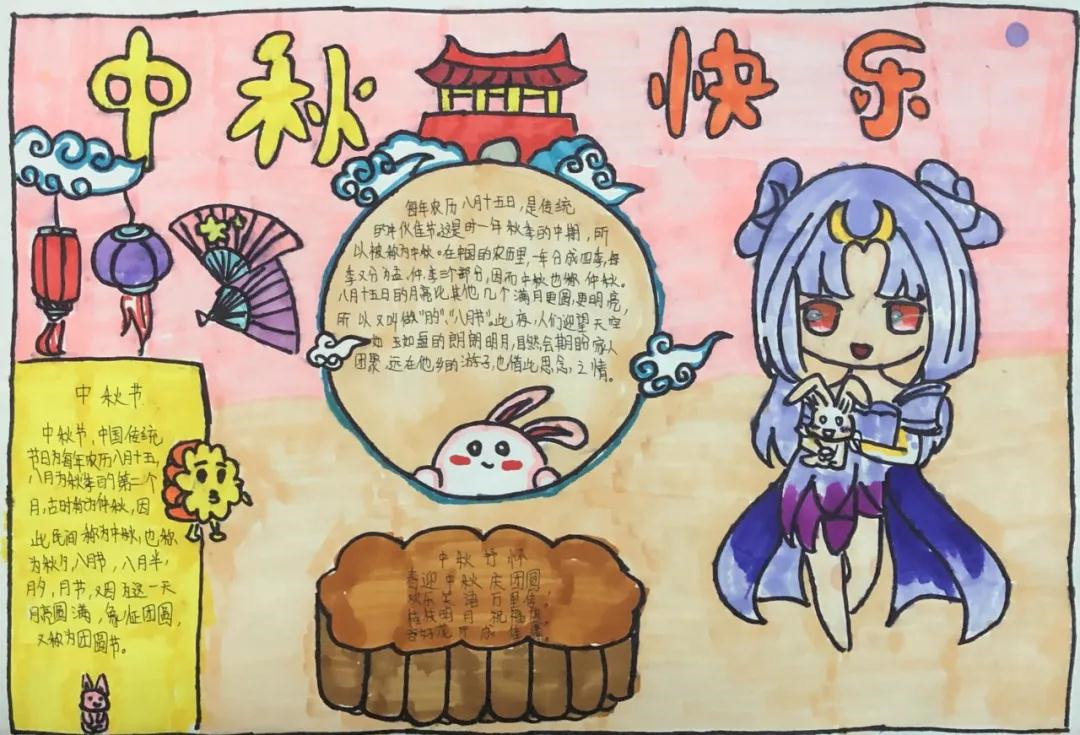 中秋快乐
每年农历八月十五日,是传统
的中秋佳节。这是时一年秋季的中期,所
以被称为中秋。在中国的农历里,一年分成四季,每
季又分为孟、仲、季三个部分,因而中秋也称仲秋。
八月十五日的月亮比其他几个满月更圆,更明亮,
所以又叫做"月的"、"八月节"。此夜,人们迎望天空
如玉如盘的朗朗明月,自然会期盼家人
团聚 远在他乡的游子,也借此思念之情。
中秋节
中秋节,中国传统
节日为每年农历八月十五,
八月为秋季的第二个
月,古时称为仲秋,因
此民间称为中秋,也称
为秋夕,八月节,八月半,
月夕,月节,又因为这一天
月亮圆满,象征团圆,
又称为团圆节。
中秋节怀
喜迎中秋庆团圆
欢乐笑语万里传!
明月祝福
花成